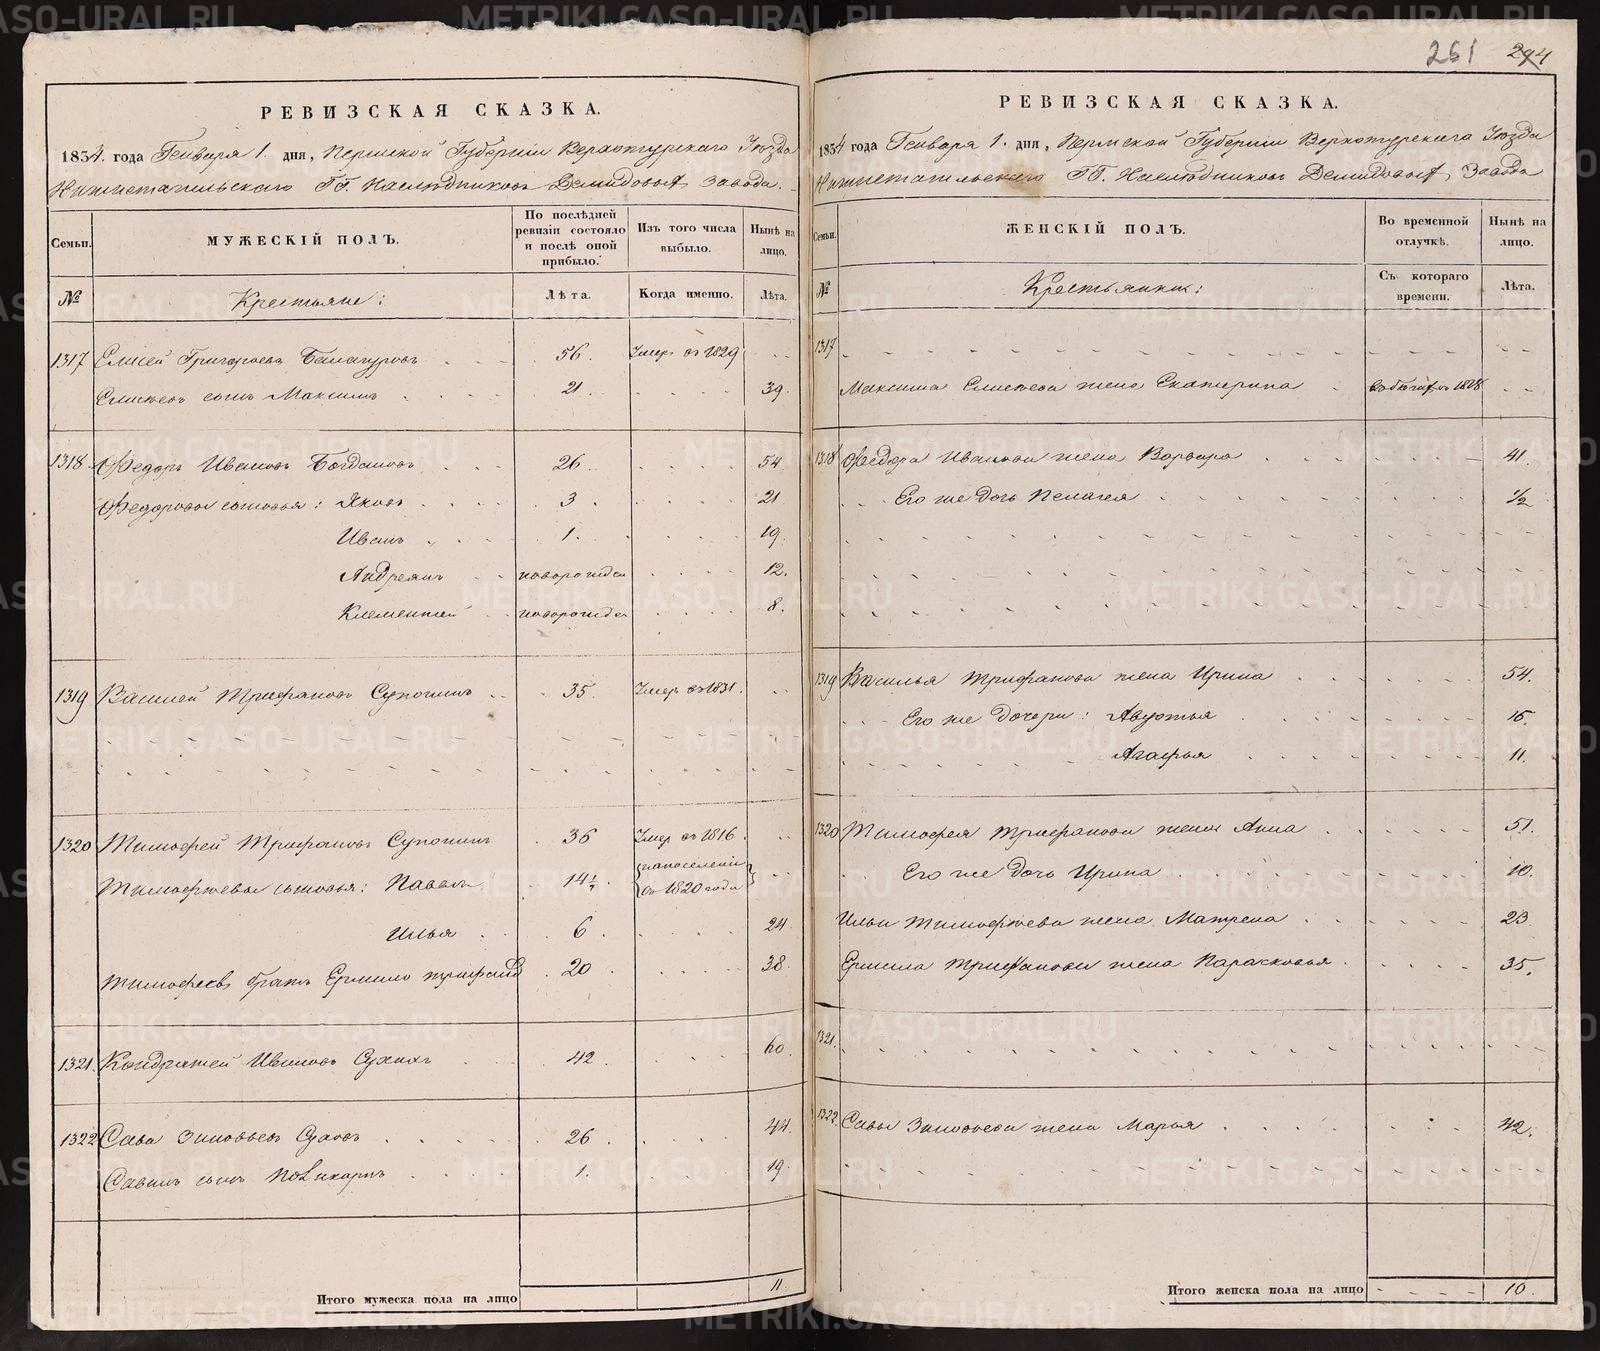 261 294
РЕВИЗСКАЯ СКАЗКА.
1834. года Генваря 1. дня, Пермской Губернiи Верхотурскаго Уѣзда
Нижнетагильскаго ГГ. Наслѣдниковъ Демидовыхъ Завода.
Семьи. МУЖЕСКIЙ ПОЛЪ. По послѣдней ревизiи состояло и послѣ оной прибыло. Изъ того числа выбыло. Нынѣ на лицо.
№ Крестьяне: Лѣта. Когда именно. Лѣта.
1317 Елисей Григорьевъ Балагуровъ 56. Умер. въ 1829
Елисѣевъ сынъ Максимъ 21. 39.
1318. Ѳедоръ Ивановъ Богдановъ 26. 54.
Ѳедоровы сыновья: Яковъ 3. 21
Иванъ 1. 19.
Андреянъ новорожден 12.
Клементей новорожден 8.
1319 Василей Трифановъ Супонинъ 35. Умер. въ 1831.
1320 Тимофей Трифановъ Супонинъ 36 Умер въ 1816.
Тимофѣевы сыновья: Павелъ 14½ напоселенiи въ 1820 году
Илья 6. 24
Тимофеевъ братъ Ермило Трифанов 20 38
1321. Кондратей Ивановъ Сухихъ 42. 60.
1322 Сава Зиновьевъ 26. 44.
Савинъ сынъ Поликарпъ 1. 19
Итого мужеска пола на лицо 11.
РЕВИЗСКАЯ СКАЗКА.
1834 года Генваря 1. дня, Пермской Губернiи Верхотурскаго Уѣзда
Нижнетагильскаго ГГ. Наслѣдниковъ Демидовыхъ Завода
Семьи. ЖЕНСКIЙ ПОЛЪ. Во временной отлучкѣ. Нынѣ на лицо.
№ Крестьянки: Съ котораго времени. Лѣта.
1317
Максима Елисѣева жена Екатерина въ 1828
1318 Ѳедора Иванова жена Варвара 41.
Его же дочь Пелагея ½
1319 Василья Трифанова жена Ирина 54.
Его же дочери: Авдотья 15.
Агафья 11.
1320 Тимофея Трифанова жена Анна 51.
Его же дочь Ирина 10.
Ильи Тимофѣева жена Матрена 23
Ермила Трифанова жена Парасковья 35.
1321.
1322. Савы Зиновьева жена Марья 42.
Итого женска пола на лицо 10.
METRIKI.GASO-URAL.RU